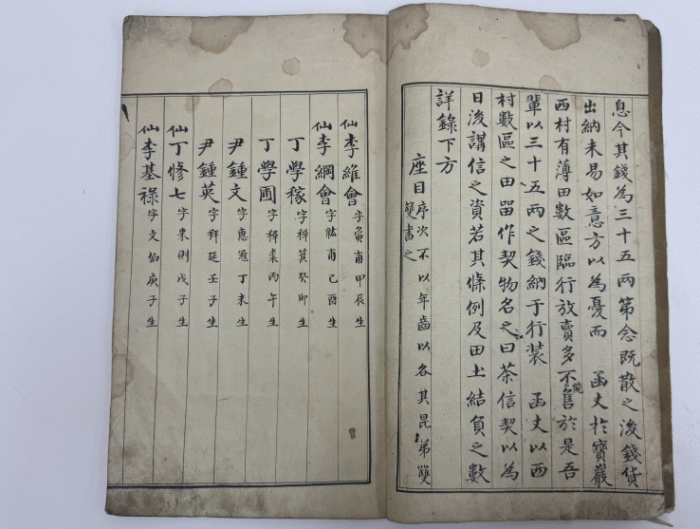 息今其錢為三十五兩第念旣散之後錢貨
出納未易如意方以為憂而 函丈於寶巖
西村有薄田數區臨行放賣多不售於是吾
輩以三十五兩之錢納于行裝 函丈以西
村數區之田留作契物名之曰茶信契以為
日後講信之資若其條例及田土結負之數
詳錄下方
座目序次不以年齒以各其昆弟雙
雙書之
仙李維會字寅甫甲辰生
仙李綱會字紘甫己酉生
丁學稼字稺箕癸卯生
丁學圃字稺裘丙午生
尹鍾文字惠冠丁未生
尹鍾英字拜延壬子生
仙丁修七字來則戊子生
仙李基祿字文伯庚子生